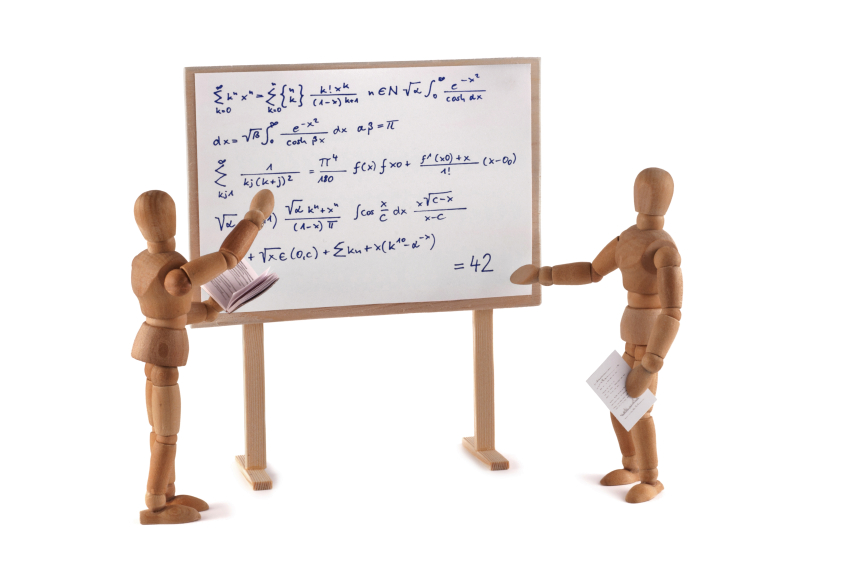 ∞∑k=0 kⁿ xⁿ = n∑k=0 {n k} k! xk / (1-x) k+1 n ∈ N √α ∫₀^∞ e^-x² / cosh dx
dx = √β ∫₀^∞ e^-x² / cosh βx dx αβ = π
∞∑kj1 1 / kj(k+j)² = π⁴ / 180 f(x) f x0 + f¹(x0)+x / 1! (x-00)
√α 1) √α kⁿ+xⁿ / (1-x) π ∫cos x/c dx x√c-x / x-c
+ √x ∈ (0,c) + ∑kn + x(k¹⁰ - α^-x)
= 42